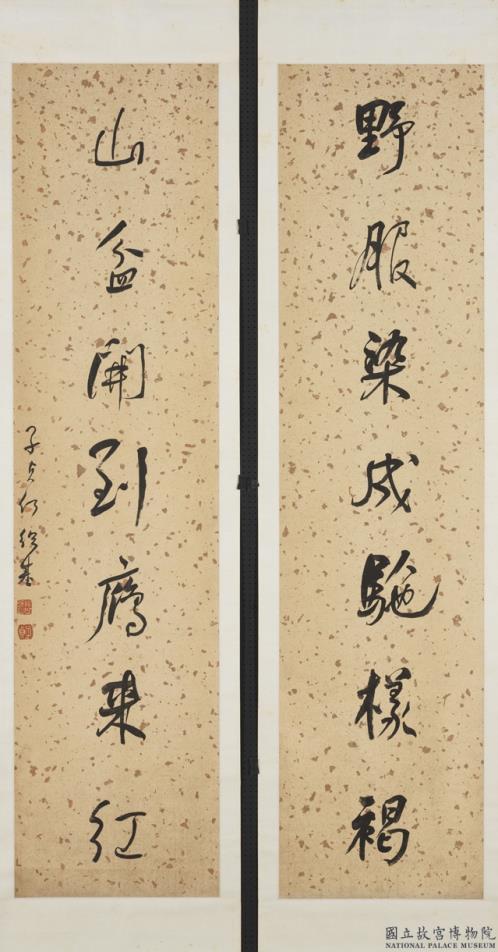 野服染成駞樣褐
山盆開到鴈來紅
子貞何紹基
國立故宮博物院
NATIONAL PALACE MUSEUM